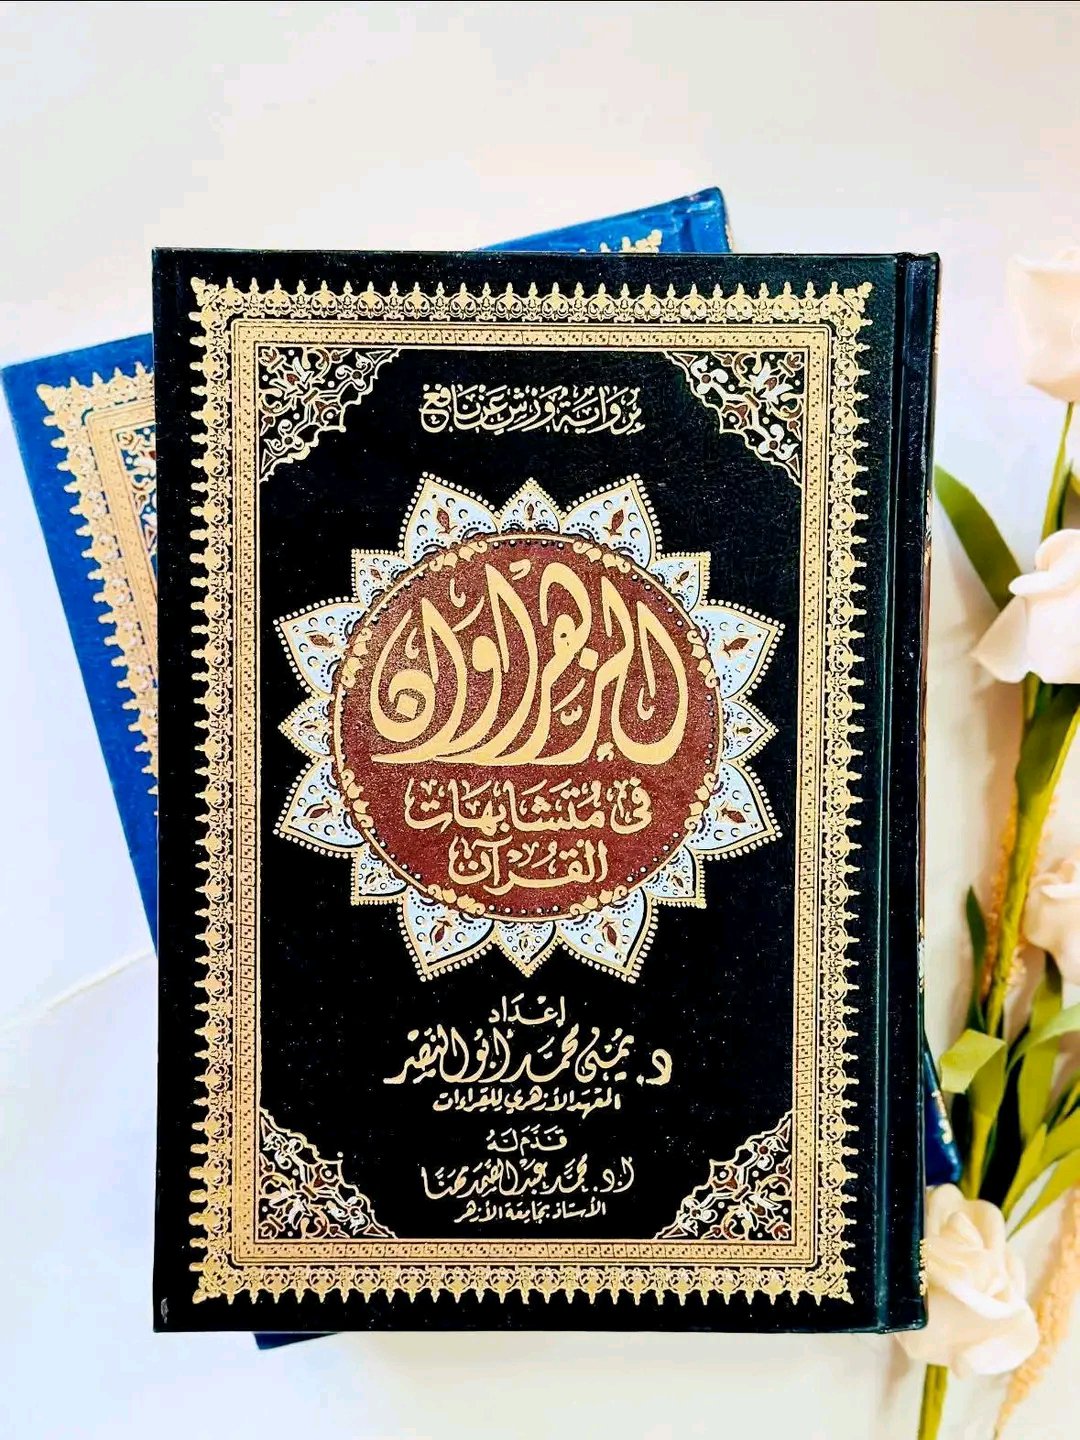 بِرِوَايَة وَرْش عَنْ نَافِع
الزهراوان
فى مُتَشَابِهَات
القُرْآن
إعْدَاد
د. يُمْنى مُحَمَّد أبُو النَّصْر
المَعْهَد الأزهري للقراءات
قَدَّمَ لَهُ
أ.د. مُحَمَّد عَبْد الصَّمَد مهنا
الأستاذ بجَامِعَة الأزهر